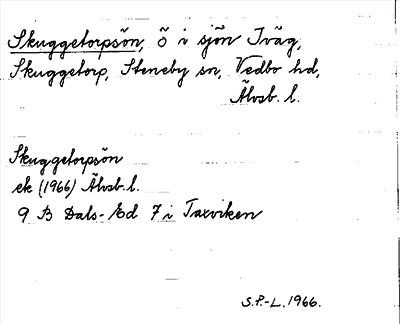 Skuggetorpsön, ö i sjön Iväg,
Skuggetorp, Steneby sn, Vedbo hd,
Älvsb. l.
Skuggetorpsön
ek (1966) Älvsb. l.
9 B Dals-Ed 7 i Taxviken
S.P.-L. 1966.